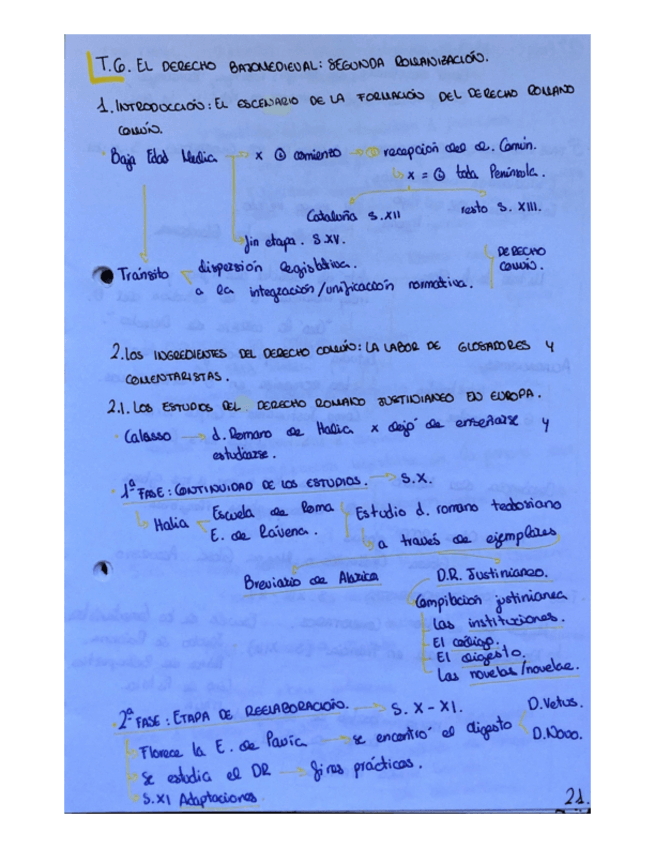 T.6. EL DERECHO BAJOMEDIEVAL: SEGUNDA ROMANIZACIÓN.
1. INTRODUCCIÓN: EL ESCENARIO DE LA FORMACIÓN DEL DERECHO ROMANO
COMÚN.
Baja Edad Media → x comienzo → recepción del d. Común.
↳ x = toda Península.
Cataluña s.XII
resto s. XIII.
↳ fin etapa. S.XV.
Tránsito
dispersión legislativa.
a la integración/unificación normativa.
DERECHO
COMÚN.
2. LOS INGREDIENTES DEL DERECHO COMÚN: LA LABOR DE GLOSADORES Y
COMENTARISTAS.
2.1. LOS ESTUDIOS DEL DERECHO ROMANO JUSTINIANEO EN EUROPA.
· Calasso → d. Romano de Italia x dejó de enseñarse y
estudiarse.
· 1ª FASE: CONTINUIDAD DE LOS ESTUDIOS. → S.X.
↳ Italia
Escuela de Roma
E. de Rávena.
Estudio d. romano teodosiano
↳ a través de ejemplares
Breviario de Alarico
D.R. Justinianeo.
Compilación justinianea
Las instituciones.
El código.
El digesto.
Las novelas/novelae.
· 2ª FASE: ETAPA DE REELABORACIÓN. → S. X - XI.
Florece la E. de Pavía → se encontró el digesto
D.Vetus.
D.Novo.
Se estudia el DR → fines prácticos.
S.XI Adaptaciones.
21.